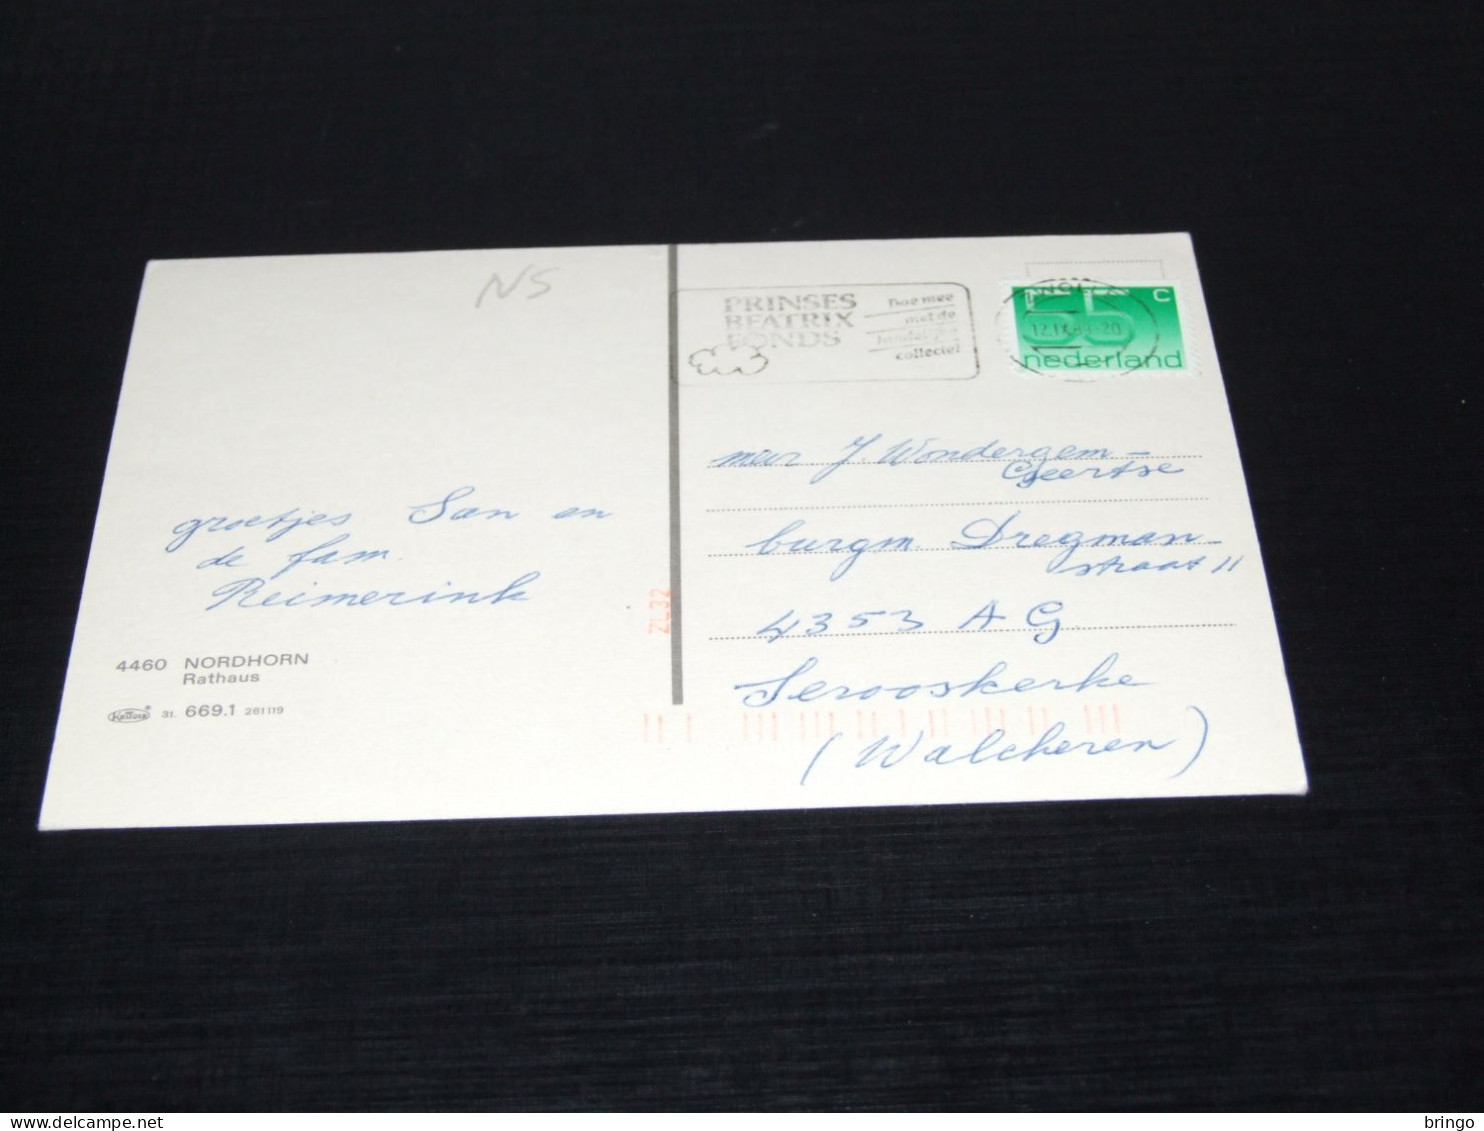 NS
PRINSES
BEATRIX
FONDS
Doe mee
met de
landelijke
collecte!
55 C
12.IX.83-20
nederland
mevr J. Wondergem-
Geertse
burgm. Dregman-
straat 11
4353 AG
Serooskerke
(Walcheren)
groetjes San en
de fam.
Reimerink
ZL32
4460 NORDHORN
Rathaus
31. 669.1 261119
bringo